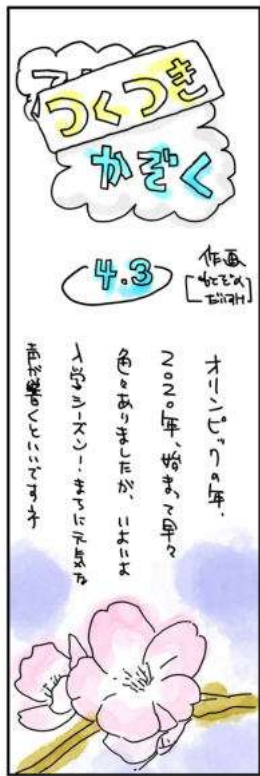 つくつき
かぞく
4.3
作画
オリンピックの年、
2020年、始まって早々
色々ありましたが、いよいよ
入学シーズン!まちに元気な
声が響くといいですネ